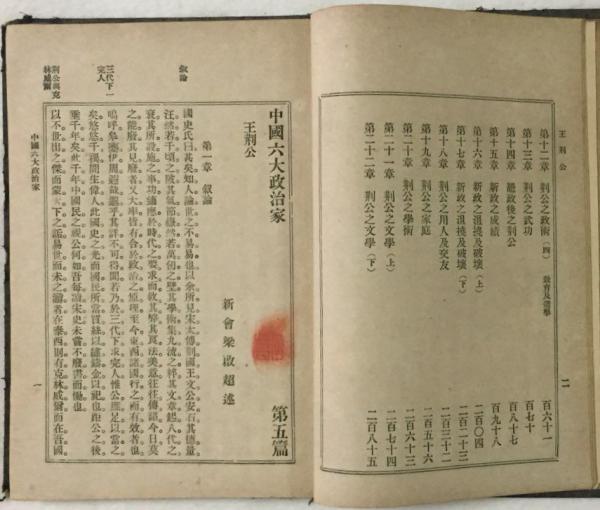 王荊公
第十二章 荊公之政術(四) 教育及選舉 百六十一
第十三章 荊公之武功 百七十
第十四章 罷政後之荊公 百八十七
第十五章 新政之成績 百九十八
第十六章 新政之阻撓及破壞(上) 二百〇四
第十七章 新政之阻撓及破壞(下) 二百二十三
第十八章 荊公之用人及交友 二百三十二
第十九章 荊公之家庭 二百五十六
第二十章 荊公之學術 二百六十三
第二十一章 荊公之文學(上) 二百七十四
第二十二章 荊公之文學(下) 二百八十五
二
中國六大政治家 第五篇
王荊公
新會梁啟超述
第一章 敘論
敘論
國史氏曰甚矣知人論世之不易易也以余所見宋太傅荊國王文公安石其德量
汪然若千頃之陂其氣節嶽然若萬仞之壁其學術集九流之粹其文章起八代之
衰其所設施之事功適應於時代之要求而救其弊其良法美意往往傳諸今日莫
之能廢其見廢者又大率皆有合於政治之原理至今東西諸國行之而有效者也
三代下一完人
嗚呼皋夔伊周邈哉邈乎其詳不可得聞若乃於三代下求完人惟公庶足以當之
矣悠悠千禩間生偉人此國史之光而國民所當買絲以繡鑄金以祀也距公之後
垂千年矣此千年中國民之視公何如吾每讀宋史未嘗不廢書而慟也
荊公與克林威爾
以不世出之傑而蒙天下之詬易世而未之湔者在泰西則有克林威爾而在吾國
中國六大政治家
一